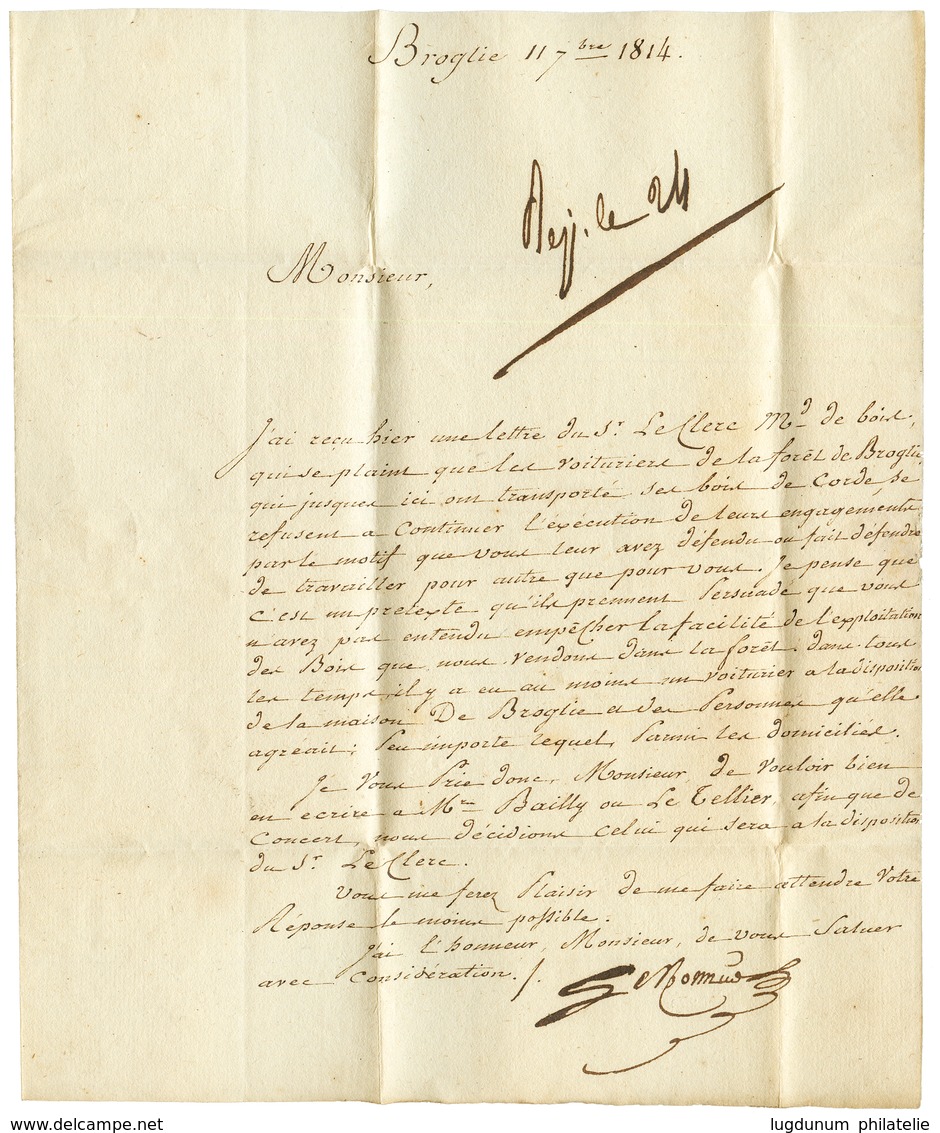 Broglie 11 7bre 1814.
Rep. le 24
Monsieur,
J'ai reçu hier une lettre du Sr. Le Clerc Md de bois,
qui se plaint que les voituriers de la forêt de Broglie,
qui jusques ici ont transporté ses bois de Corde, se
refusent a Continuer l'éxécution de leurs engagements,
par le motif que vous leur avez défendu ou fait défendre
de travailler pour autre que pour vous. Je pense que
c'est un pretexte qu'ils prennent Persuadé que vous
n'avez pas entendu empêcher la facilité de l'exploitation
des Bois que nous vendons dans la forêt. dans tous
les temps, il y a eu au moins un voiturier a la disposition
de la maison De Broglie et des Personnes qu'elle
agréait; Peu importe lequel, Parmi les domiciliés.
Je Vous Prie donc, Monsieur, de vouloir bien
en ecrire a Mrs Bailly ou Le Tellier, afin que de
Concert, nous décidions celui qui sera a la disposition
du Sr. Le Clerc.
Vous me ferez Plaisir de me faire attendre Votre
Réponse le moins possible.
J'ai l'honneur, Monsieur, de vous Saluer
avec Considération. /.
lugdunum philatelie